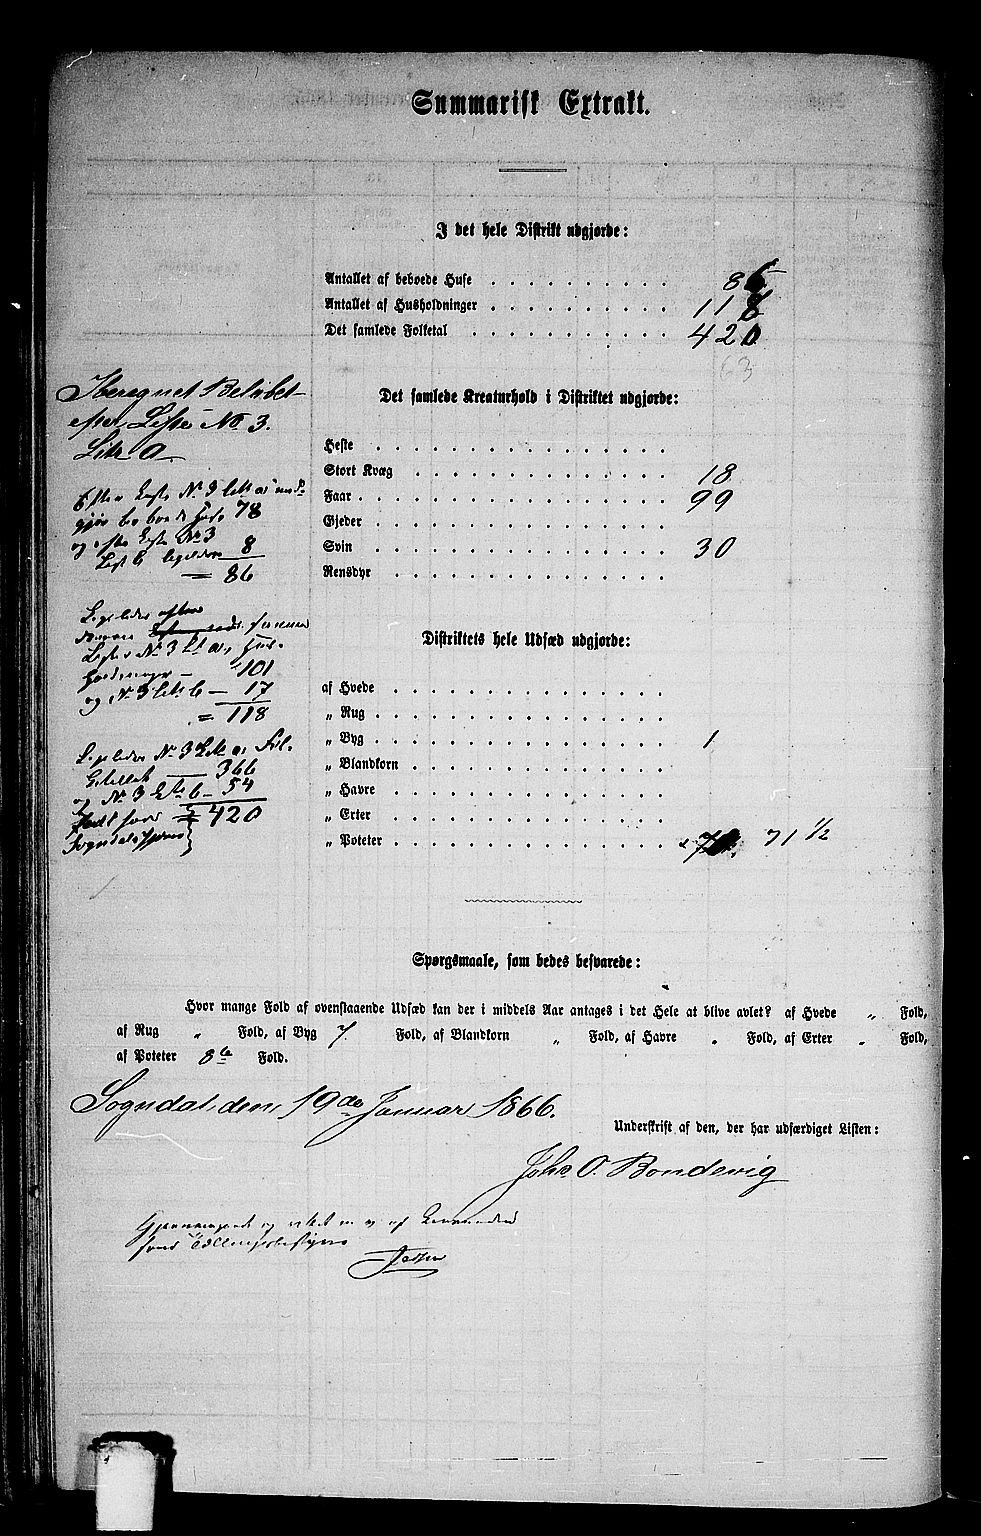 Summarisk Extrakt.
I det hele Distrikt udgjorde:
Antallet af beboede Huse . . . . . . . . . . 86
Antallet af Husholdninger . . . . . . . . . . 118
Det samlede Folketal . . . . . . . . . . . 420
63
Iberegnet Beløbet
efter Liste No 3.
Litr. a
Det samlede Kreaturhold i Distriktet udgjorde:
Heste . . . . . . . . . . . . . . . .
Stort Kvæg . . . . . . . . . . . . . 18
Faar . . . . . . . . . . . . . . . . 99
Gjeder . . . . . . . . . . . . . . . .
Svin . . . . . . . . . . . . . . . 30
Rensdyr . . . . . . . . . . . . . . .
Efter Liste No 3 Litr a
beboede Huse 78
og efter Liste No 3
Litr b ligeledes 8
= 86
Ligeledes efter
Liste No 3 Lt a, Hus-
holdninger – 101
og No 3 Litr b – 17
= 118
Ligeledes No 3 Litr a, Fol-
ketallet 366
og No 3 Litr b – 54
= 420
Distriktets hele Udsæd udgjorde:
af Hvede . . . . . . . . . . . . . . .
„ Rug . . . . . . . . . . . . . . . .
„ Byg . . . . . . . . . . . . . . . . 1
„ Blandkorn . . . . . . . . . . . . . .
„ Havre . . . . . . . . . . . . . . .
„ Erter . . . . . . . . . . . . . . .
„ Poteter . . . . . . . . . . . . . . 71 1/2
Spørgsmaale, som bedes besvarede:
Hvor mange Fold af ovenstaaende Udsæd kan der i middels Aar antages i det Hele at blive avlet? af Hvede „ Fold,
af Rug „ Fold, af Byg 7 Fold, af Blandkorn „ Fold, af Havre „ Fold, af Erter „ Fold,
af Poteter 8te Fold.
Sogndal, den 19de Januar 1866.
Underskrift af den, der har udfærdiget Listen:
Johs. O. Bondevig
Gjennemgaaet og rettet af